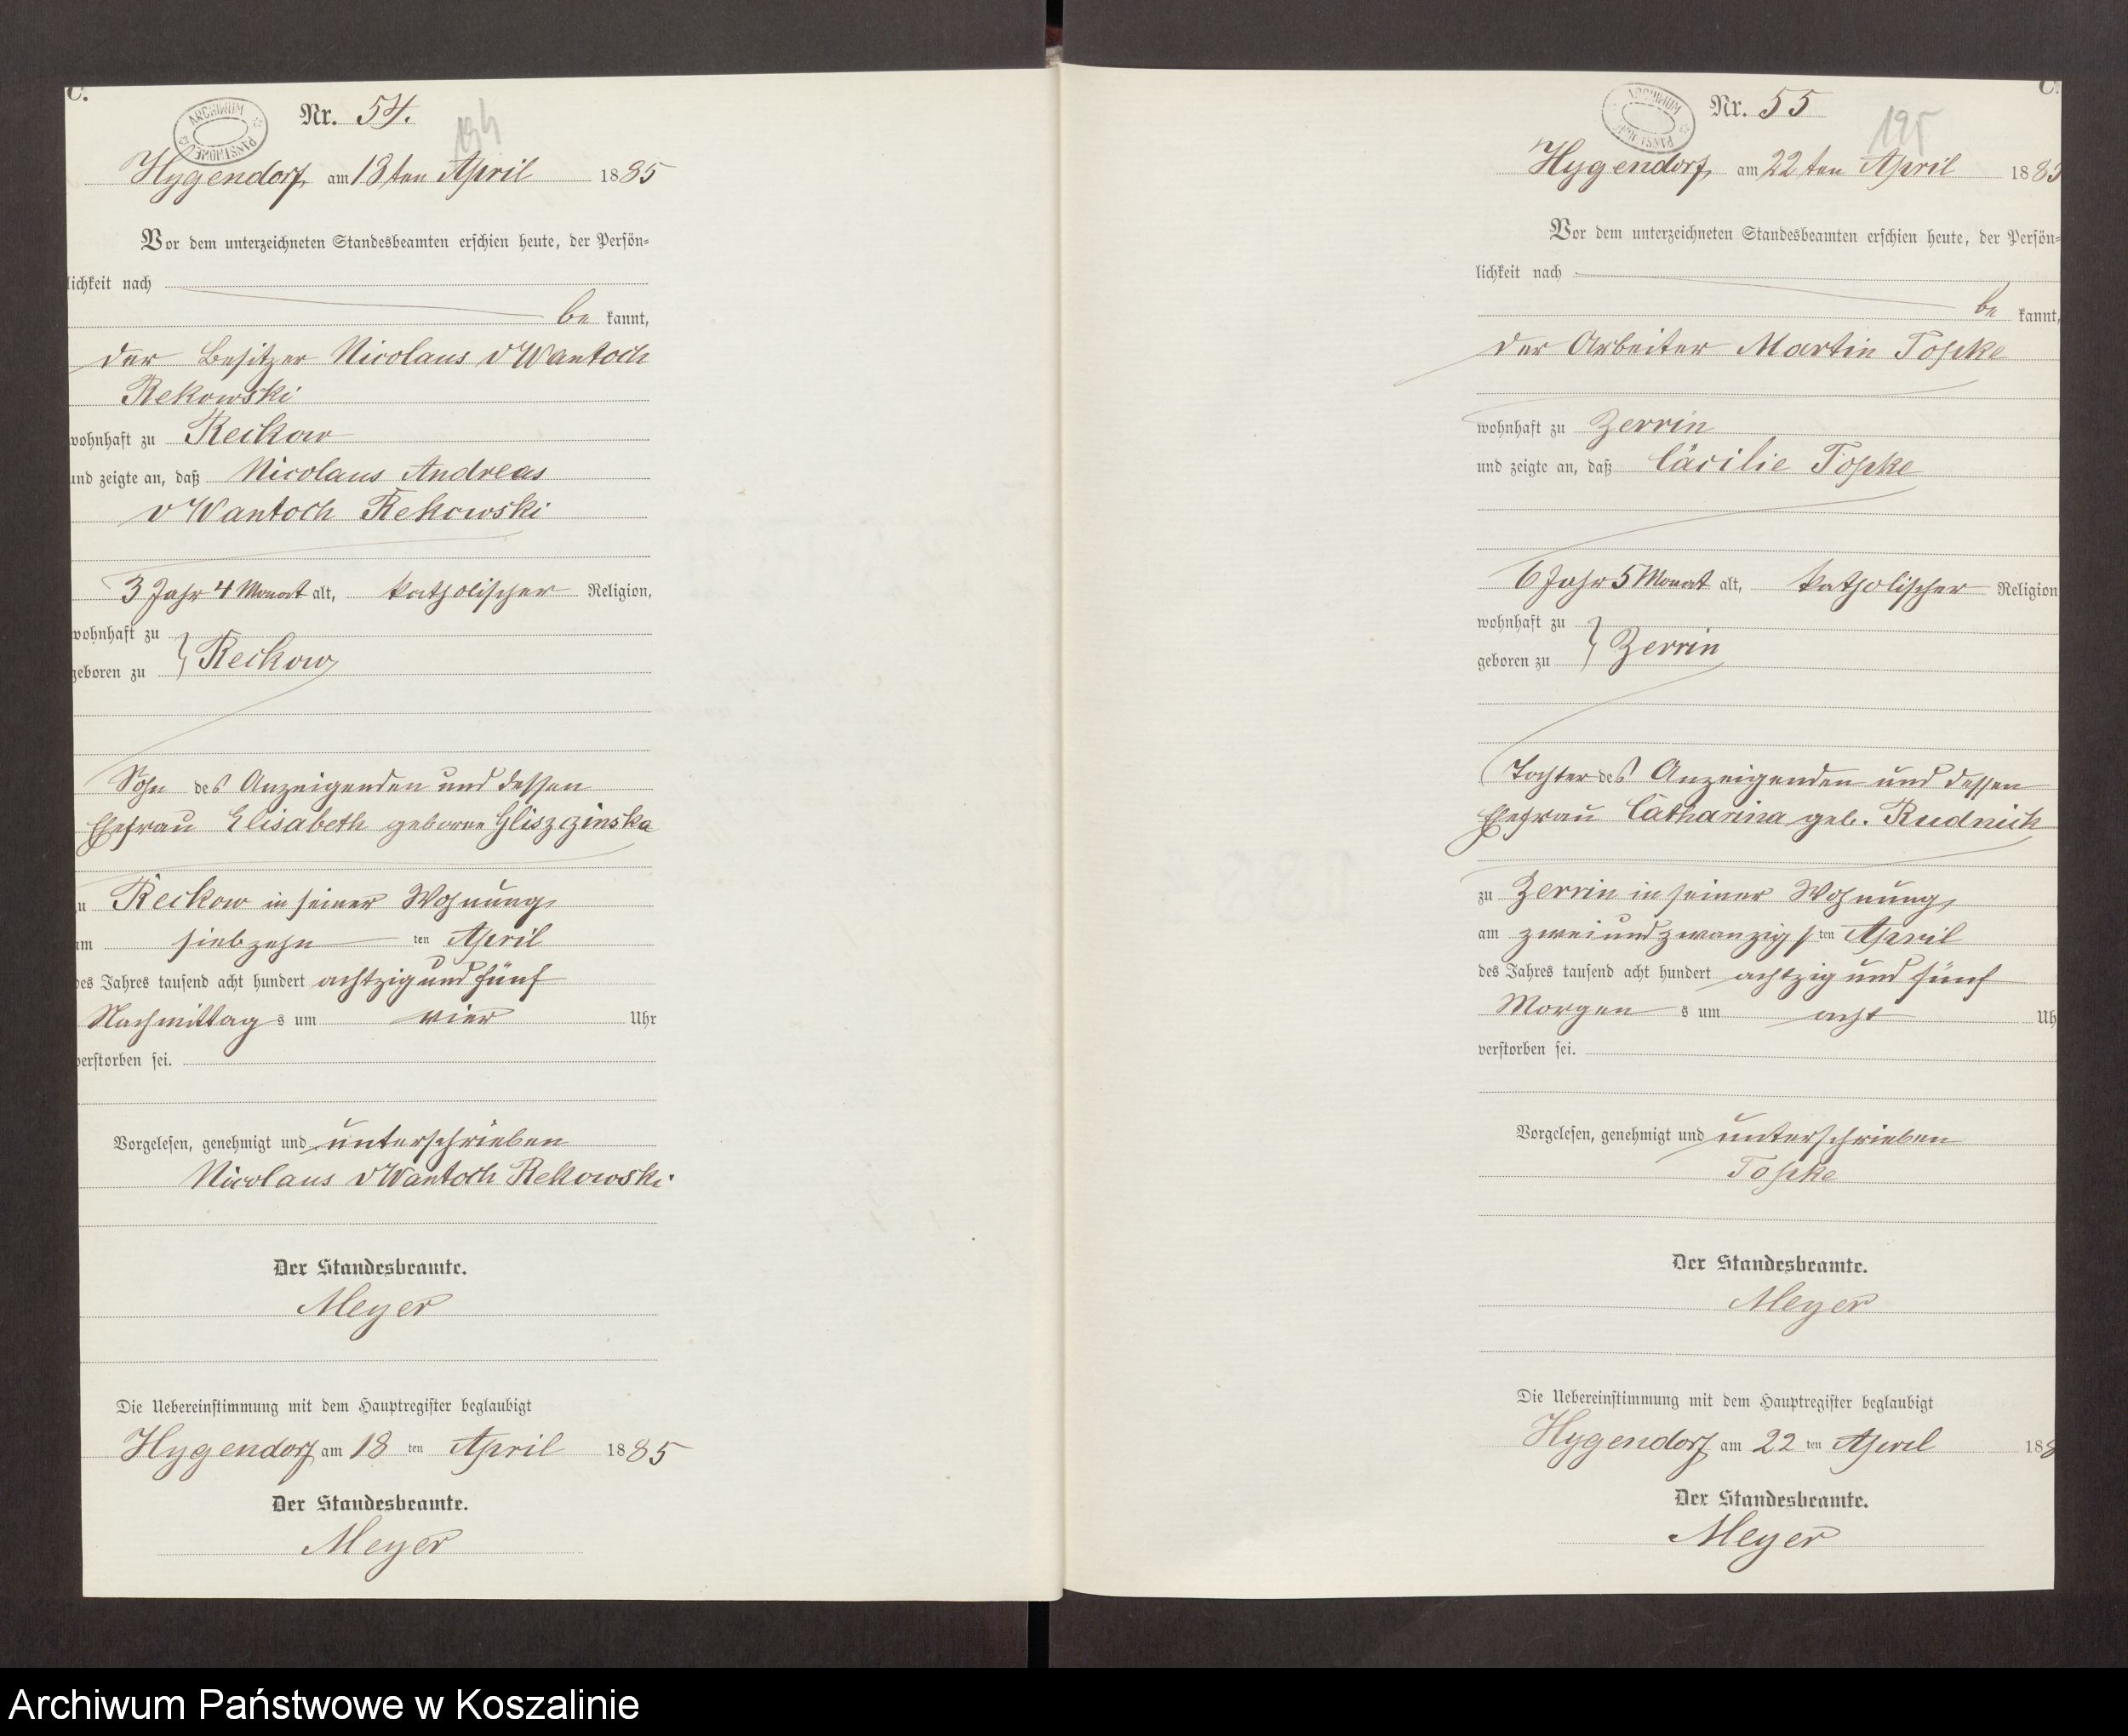 C.
ARCHIWUM PAŃSTWOWE
Nr. 54.
194
Hygendorf, am 18ten April 1885
Vor dem unterzeichneten Standesbeamten erschien heute, der Persön-
lichkeit nach
be kannt,
der Besitzer Nicolaus v Wantoch
Rekowski
wohnhaft zu Reckow
und zeigte an, daß Nicolaus Andreas
v Wantoch Rekowski
3 Jahr 4 Monat alt, katholischer Religion,
wohnhaft zu
geboren zu } Reckow
Sohn des Anzeigenden und dessen
Ehefrau Elisabeth geborne Gliszczinska
zu Reckow in seiner Wohnung,
am siebzehn ten April
des Jahres tausend acht hundert achtzig und fünf
Nachmittag s um vier Uhr
verstorben sei.
Vorgelesen, genehmigt und unterschrieben
Nicolaus v Wantoch Rekowski.
Der Standesbeamte.
Meyer
Die Uebereinstimmung mit dem Hauptregister beglaubigt
Hygendorf am 18 ten April 1885
Der Standesbeamte.
Meyer
C.
ARCHIWUM PAŃSTWOWE
Nr. 55
195
Hygendorf, am 22ten April 1885
Vor dem unterzeichneten Standesbeamten erschien heute, der Persön-
lichkeit nach
be kannt,
der Arbeiter Martin Topke
wohnhaft zu Zerrin
und zeigte an, daß Cäcilie Topke
6 Jahr 5 Monat alt, katholischer Religion
wohnhaft zu
geboren zu } Zerrin
Tochter des Anzeigenden und dessen
Ehefrau Catharina geb. Rudnick
zu Zerrin in seiner Wohnung,
am zweiundzwanzigs ten April
des Jahres tausend acht hundert achtzig und fünf
Morgen s um acht Uh
verstorben sei.
Vorgelesen, genehmigt und unterschrieben
Topke
Der Standesbeamte.
Meyer
Die Uebereinstimmung mit dem Hauptregister beglaubigt
Hygendorf am 22 ten April 188
Der Standesbeamte.
Meyer
Archiwum Państwowe w Koszalinie